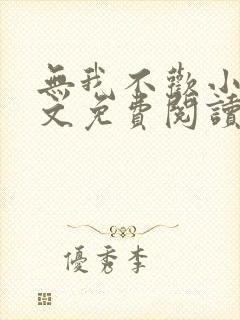 無我不歡小
文免費閱讀
優秀李